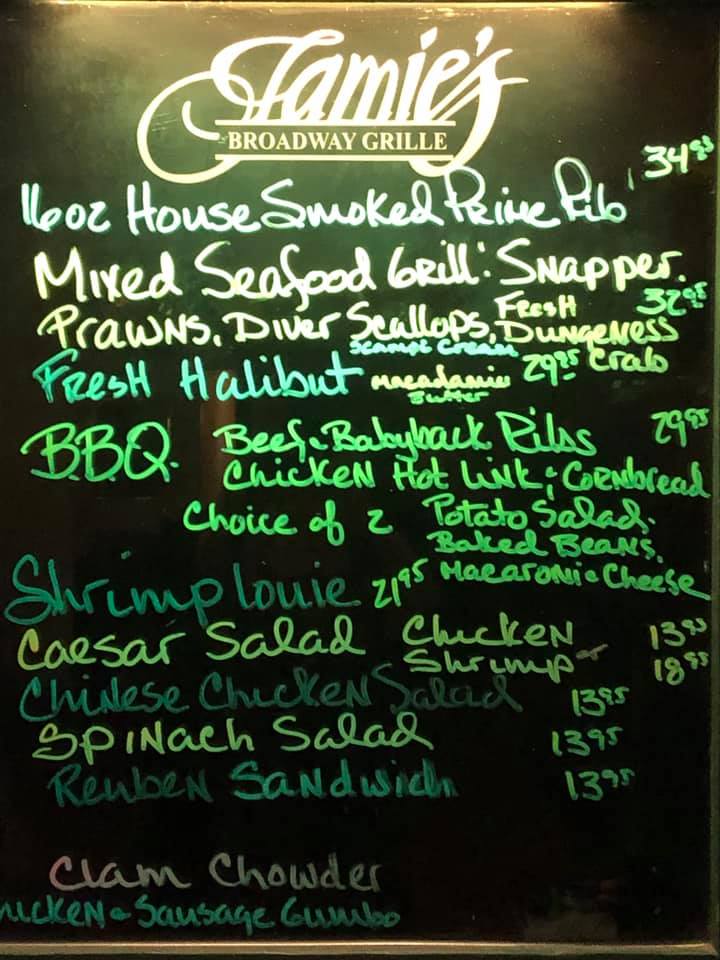 Jamie's
BROADWAY GRILLE
16oz House Smoked Prime Rib 34.95
Mixed Seafood Grill: Snapper.
Prawns, Diver Scallops, Fresh Dungeness Crab 32.95
Fresh Halibut Scampi Cream Macadamia Butter 29.95
B.B.Q. Beef & Babyback Ribs 29.95
Chicken Hot Link & Cornbread
Choice of 2 Potato Salad.
Baked Beans.
Macaroni & Cheese
Shrimp Louie 21.95
Caesar Salad Chicken 13.95
Shrimp or 18.95
Chinese Chicken Salad 13.95
Spinach Salad 13.95
Reuben Sandwich 13.95
Clam Chowder
hicken & Sausage Gumbo